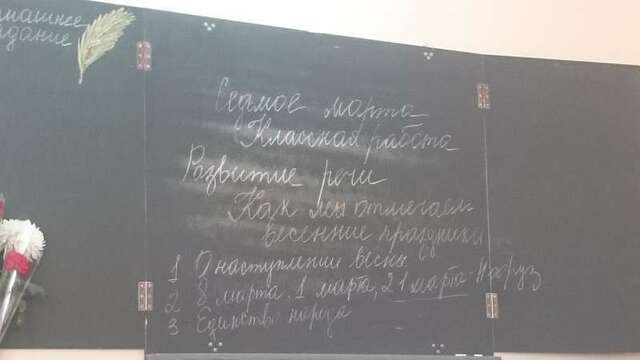 машнее
дание
Седмое марта
Классная работа
Развитие речи
Как мы отмечаем
весенние праздники
1 О наступлении весны
2 8 марта, 1 марта, 21 марта - Навруз
3 Единство народа